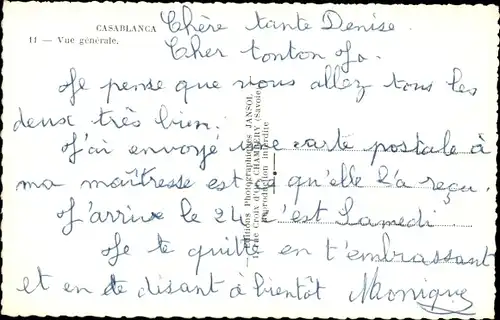 CASABLANCA
11 — Vue générale.
Chère tante Denise.
Cher tonton Jo.
Je pense que vous allez tous les
deux très bien.
J'ai envoyé une carte postale à
ma maîtresse est ce qu'elle l'a reçu.
J'arrive le 24 c'est Samedi.
Je te quitte en t'embrassant
et en te disant à bientôt Monique
Editions Photographiques JANSOL
Croix d'Or, CHAMBÉRY (Savoie)
Reproduction interdite